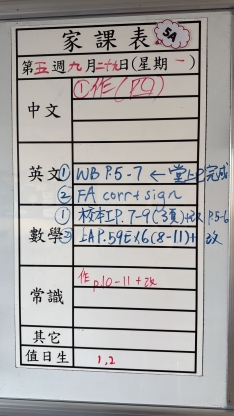 家課表
5A
第五週九月二十九日(星期一)
中文
①作(四)
英文
① WB P.5-7 ← 堂上已完成
② FA corr + sign
數學
① 校本I P.7-9(3頁)+改 P.5-6
② IA P.59 Ex6(8-11)+改
常識
作 p.10-11+改
其它
值日生
1,2